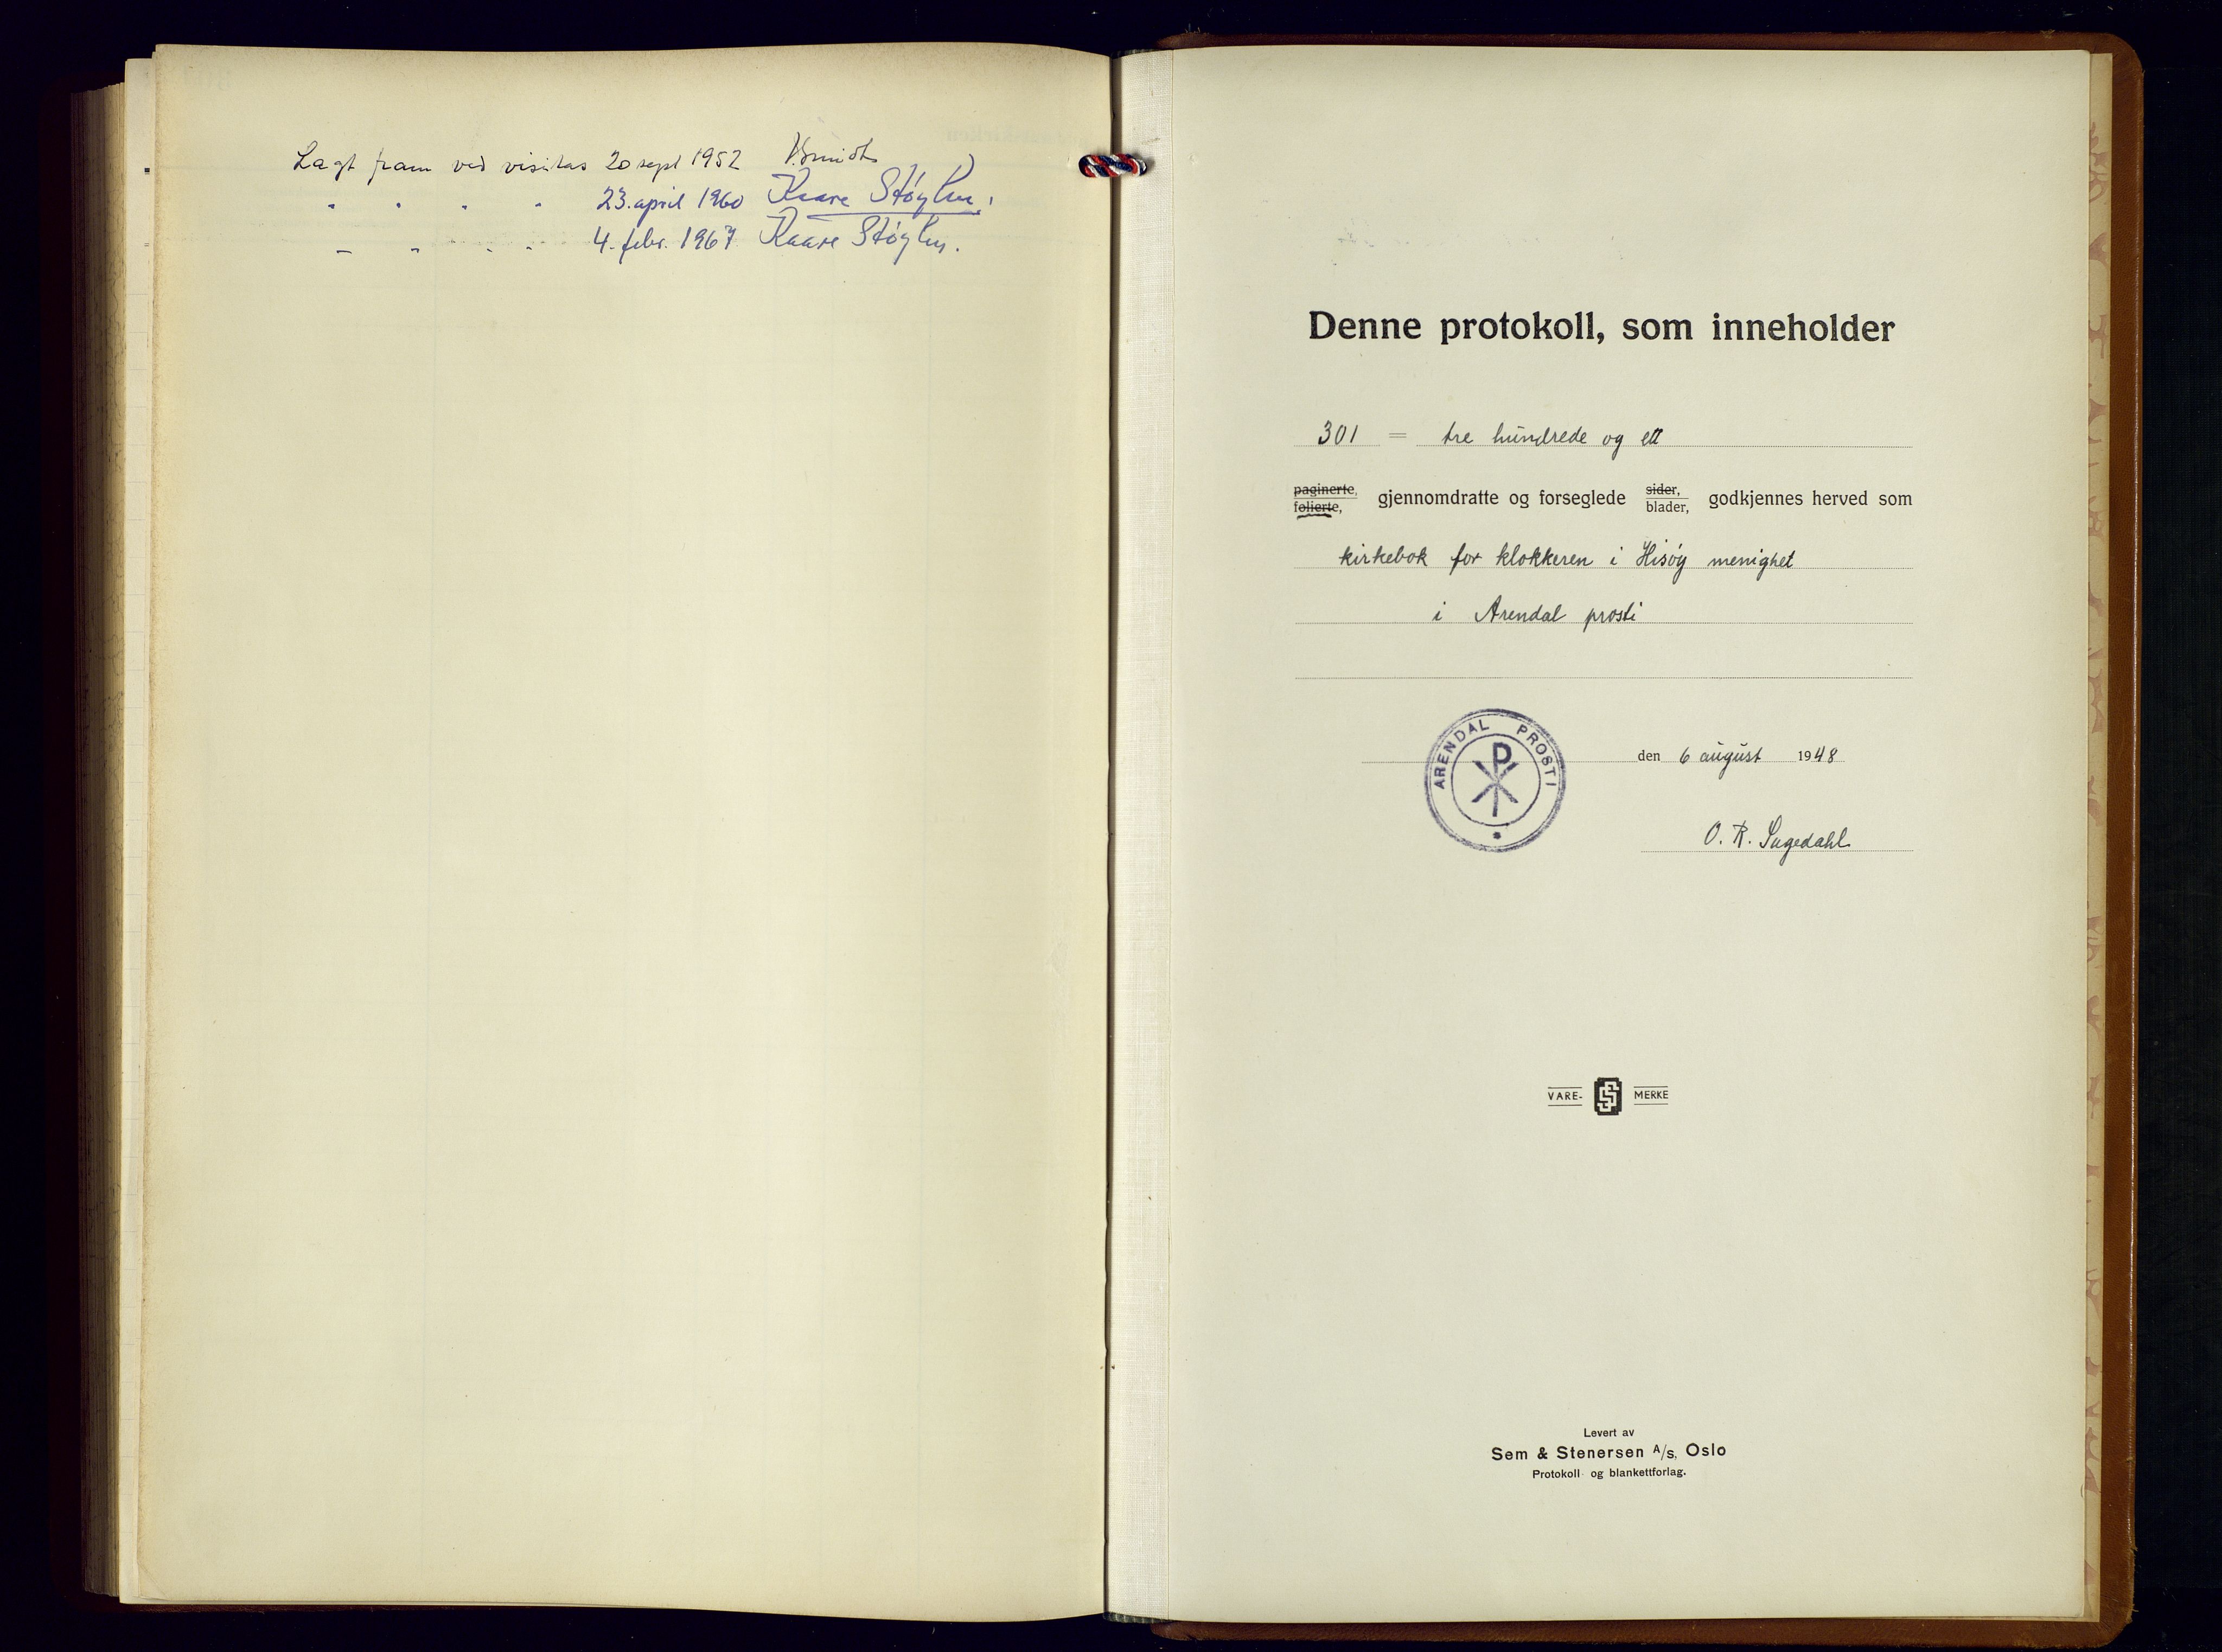 Lagt fram ved visitas 20 sept 1952 J. Smidt
" " " " 23. april 1960 Kaare Støylen.
" " " " 4. febr. 1967 Kaare Støylen.
Denne protokoll, som inneholder
301 = tre hundrede og ett
paginerte, folierte, gjennomdratte og forseglede sider, blader, godkjennes herved som
kirkebok for klokkeren i Hisøy menighet
i Arendal prosti
ARENDAL PROSTI
den 6 august 1948
O. R. Sagedahl
VARE- MERKE
Levert av
Sem & Stenersen A/s, Oslo
Protokoll og blankettforlag.